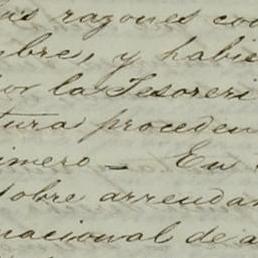 las razones co
mbre, y habie
por la Tesoreri
tura proceden
imero _ En
sobre arrenda
nacional de a